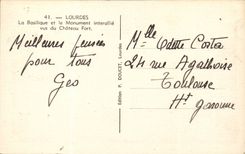 41. — LOURDES
La Basilique et le Monument interallié
vus du Château Fort.
Meilleures pensées
pour tous
Geo
Edition P. DOUCET, Lourdes
Mlle Odette Costa
24 rue Agathoise
Toulouse
Hte garonne